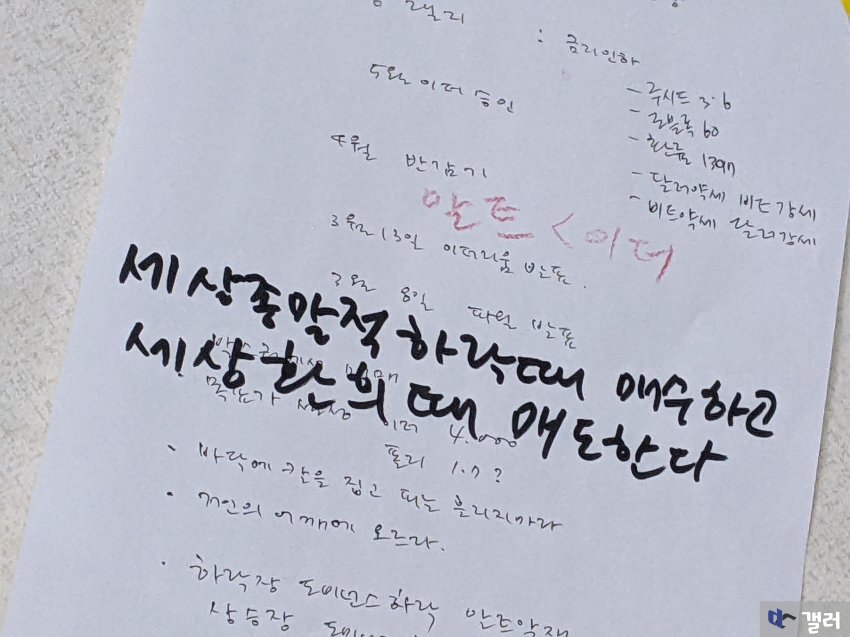 랠리
: 금리인하
5월 이더 승인
- 루시드 3.6
- 로블록 60
- 환율 1397
4월 반감기
- 달러약세 비트강세
- 비트약세 달러강세
알트 < 이더
3월 13일 이더리움 발표.
3월 8일 파월 발표
세상종말적 하락때 매수하고
세상환희때 매도한다
목표가
이더 4.000
폴리 1.7?
· 바닥에 칼을 집고 때는 흘리지마라
· 거인의 어깨에 오르라.
· 하락장 도미넌스하락 알트약재
상승장